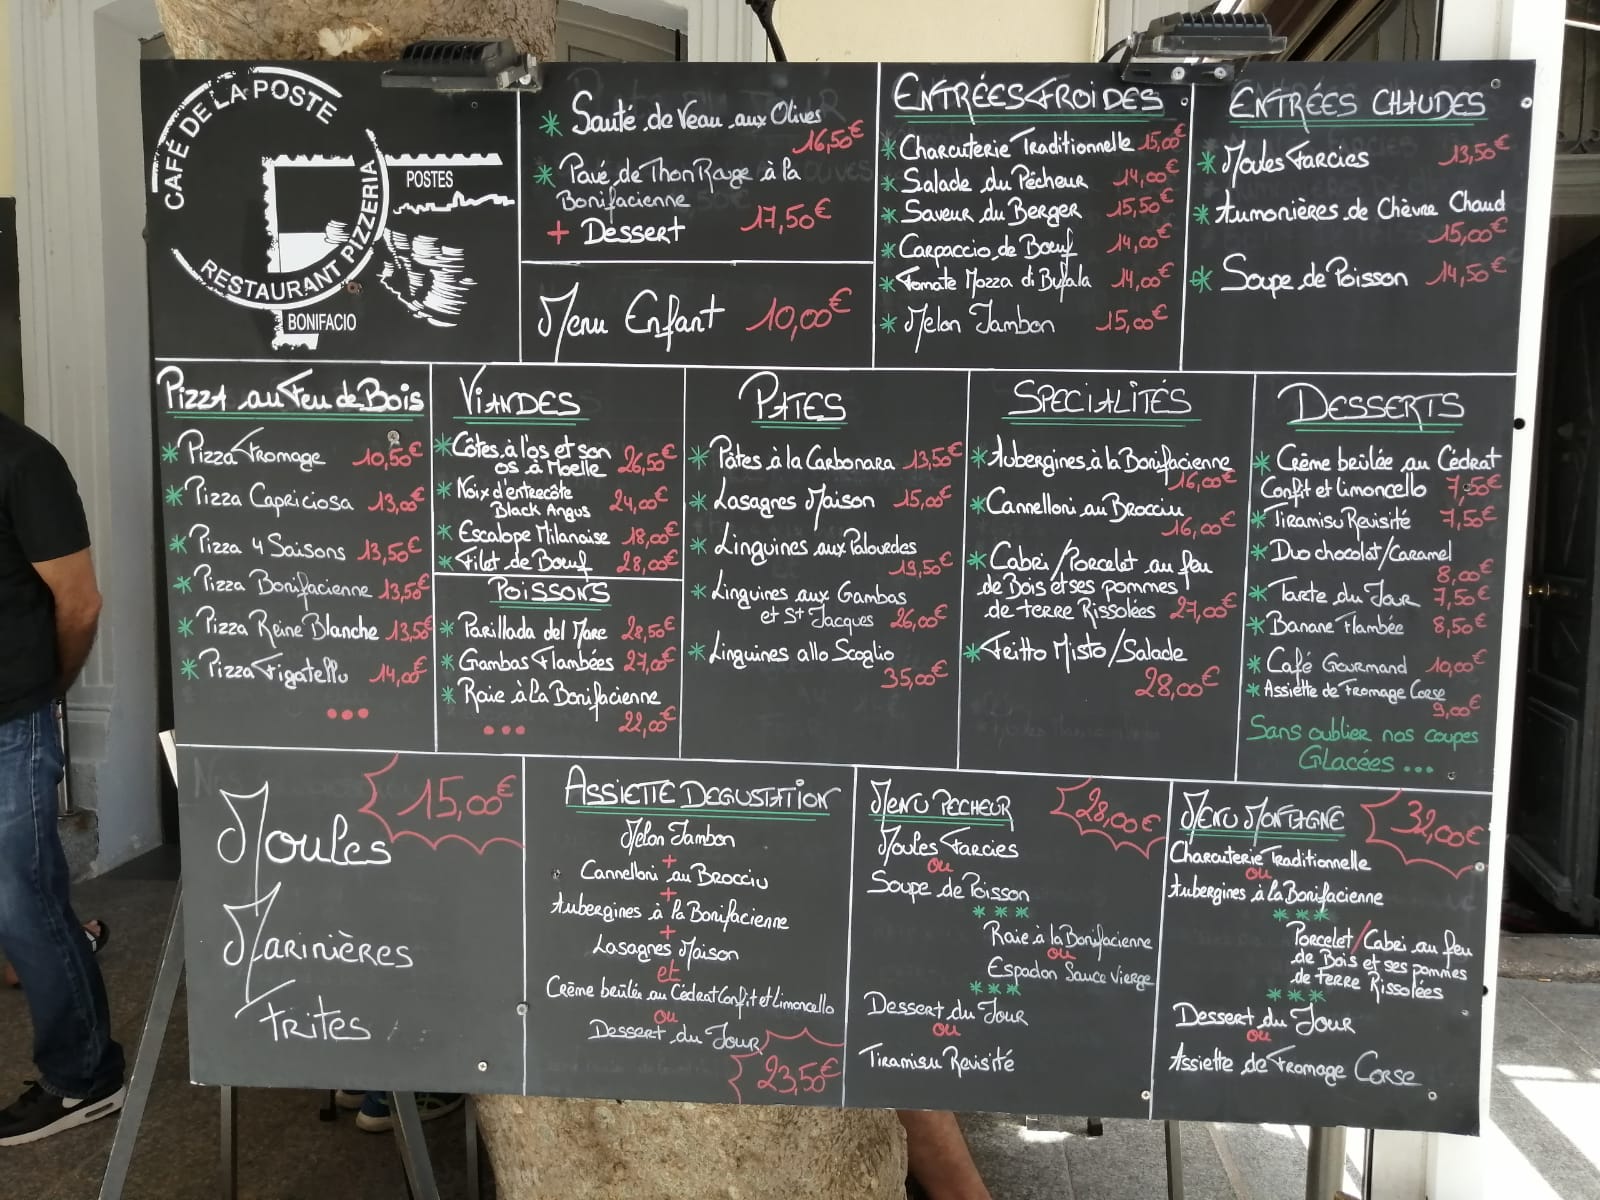 CAFÉ DE LA POSTE
RESTAURANT PIZZERIA
POSTES
BONIFACIO
* Sauté de Veau aux Olives
16,50€
* Pavé de Thon Rouge à la
Bonifacienne
+ Dessert 17,50€
Menu Enfant 10,00€
ENTRÉES FROIDES
* Charcuterie Traditionnelle 15,00€
* Salade du Pêcheur 14,00€
* Saveur du Berger 15,50€
* Carpaccio de Bœuf 14,00€
* Tomate Mozza di Bufala 14,00€
* Melon Jambon 15,00€
ENTRÉES CHAUDES
* Moules Farcies 13,50€
* Aumonières de Chèvre Chaud
15,00€
* Soupe de Poisson 14,50€
PIZZA au Feu de Bois
* Pizza Fromage 10,50€
* Pizza Capriciosa 13,00€
* Pizza 4 Saisons 13,50€
* Pizza Bonifacienne 13,50€
* Pizza Reine Blanche 13,50€
* Pizza Figatellu 14,00€
...
VIANDES
* Côtes à l'os et son
os à Moelle 26,50€
* Noix d'entrecôte
Black Angus 24,00€
* Escalope Milanaise 18,00€
* Filet de Bœuf 28,00€
POISSONS
* Parillada del Mare 28,50€
* Gambas Flambées 27,00€
* Raie à la Bonifacienne
22,00€
...
PATES
* Pâtes à la Carbonara 13,50€
* Lasagnes Maison 15,00€
* Linguines aux Palourdes
19,50€
* Linguines aux Gambas
et St Jacques 26,00€
* Linguines allo Scoglio
35,00€
SPECIALITÉS
* Aubergines à la Bonifacienne
16,00€
* Cannelloni au Brocciu
16,00€
* Cabri/Porcelet au feu
de Bois et ses pommes
de terre Rissolées 27,00€
* Fritto Misto/Salade
28,00€
DESSERTS
* Crème brûlée au Cédrat
Confit et limoncello 7,50€
* Tiramisu Revisité 7,50€
* Duo chocolat/Caramel
8,00€
* Tarte du Jour 7,50€
* Banane Flambée 8,50€
* Café Gourmand 10,00€
* Assiette de Fromage Corse
9,00€
Sans oublier nos coupes
Glacées ...
15,00€
Moules
Marinières
Frites
ASSIETTE DEGUSTATION
Melon Jambon
+
Cannelloni au Brocciu
+
Aubergines à la Bonifacienne
+
Lasagnes Maison
et
Crème brûlée au Cédrat Confit et Limoncello
ou
Dessert du Jour
23,50€
MENU PECHEUR 28,00€
Moules Farcies
ou
Soupe de Poisson
* * *
Raie à la Bonifacienne
ou
Espadon Sauce Vierge
* * *
Dessert du Jour
ou
Tiramisu Revisité
MENU MONTAGNE 32,00€
Charcuterie Traditionnelle
ou
Aubergines à la Bonifacienne
* * *
Porcelet/Cabri au feu
de Bois et ses pommes
de terre Rissolées
* * *
Dessert du Jour
ou
Assiette de Fromage Corse